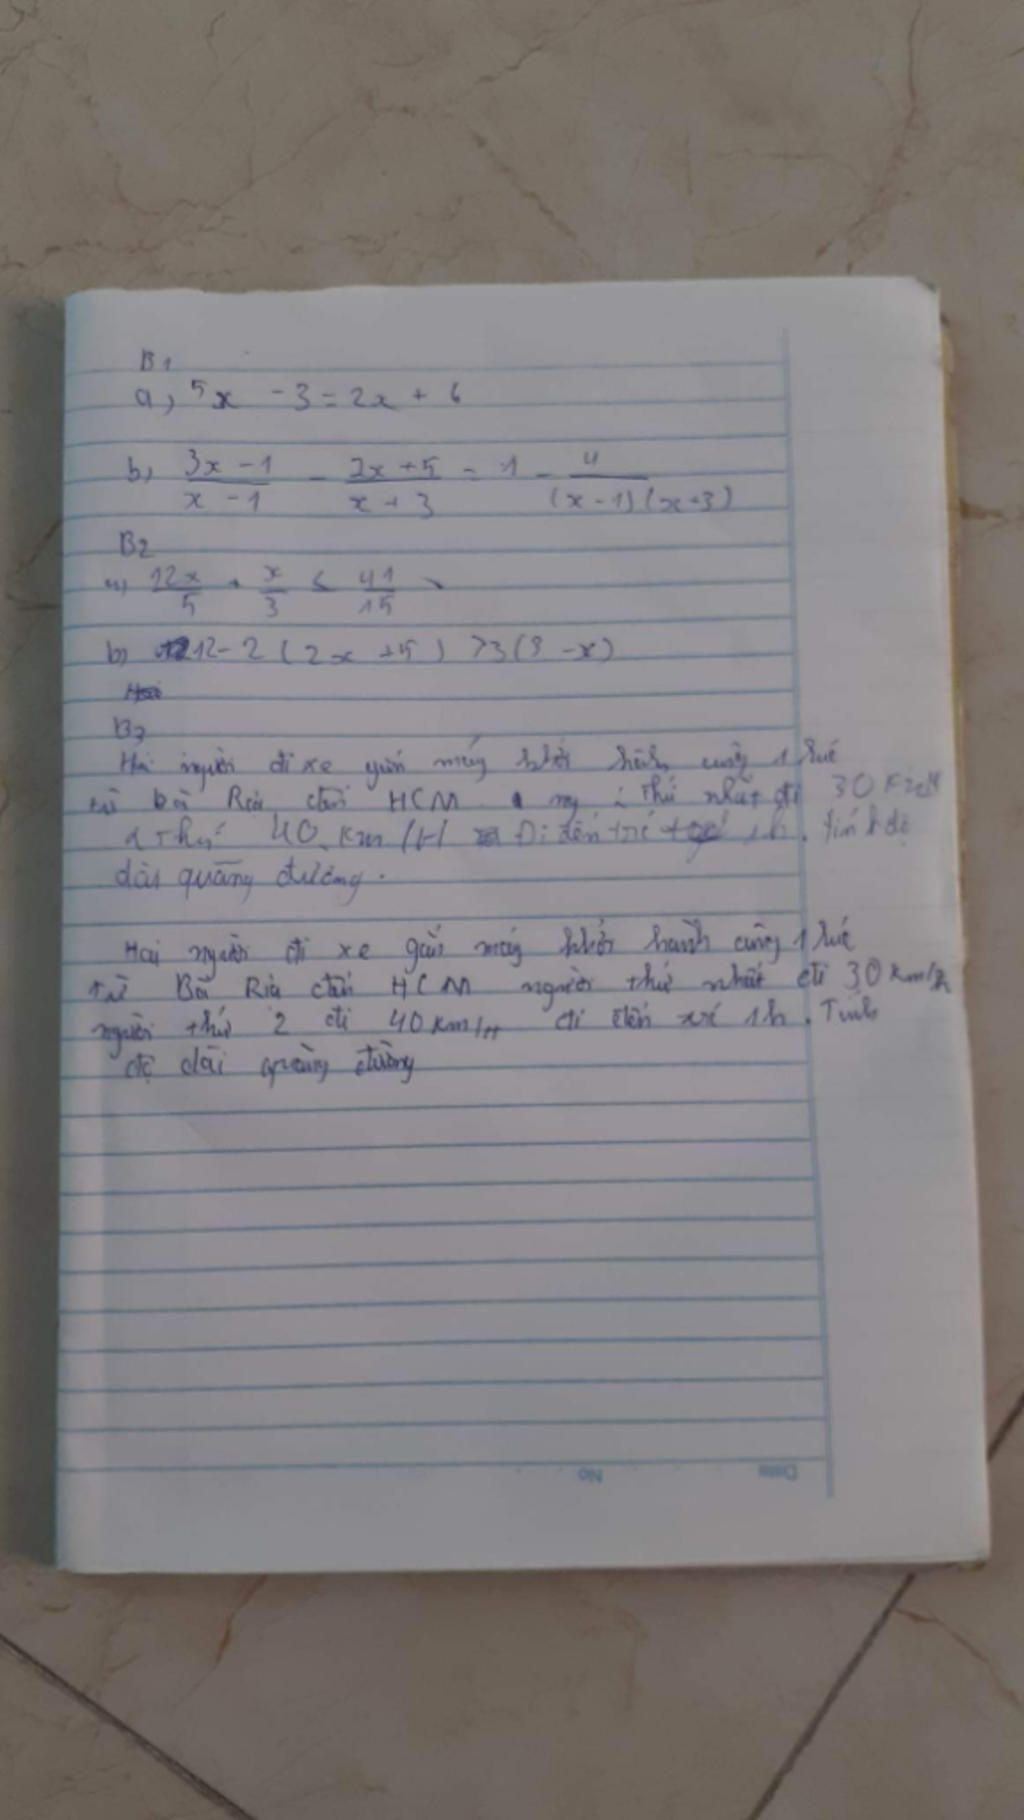 B1
a, 5x - 3 = 2x + 6
b, 3x - 1 / x - 1 - 2x + 5 / x + 3 = 1 - 4 / (x - 1) (x + 3)
B2
a) 12x / 5 + x / 3 < 41 / 15
b) 12 - 2 ( 2x + 5 ) > 3 ( 3 - x )
B3
Hai người đi xe gắn máy khởi hành cùng 1 lúc
từ bà Rịa đến HCM thứ nhất đi 30
thứ 40 km/H Đi đến trể 1h. tính độ
dài quãng đường.
Hai người đi xe gắn máy khởi hành cùng 1 lúc
từ Bà Rịa đến HCM người thứ nhất đi 30 km/h
người thứ 2 đi 40 km/H đi đến 1h. Tính
độ dài quãng đường
No
Date